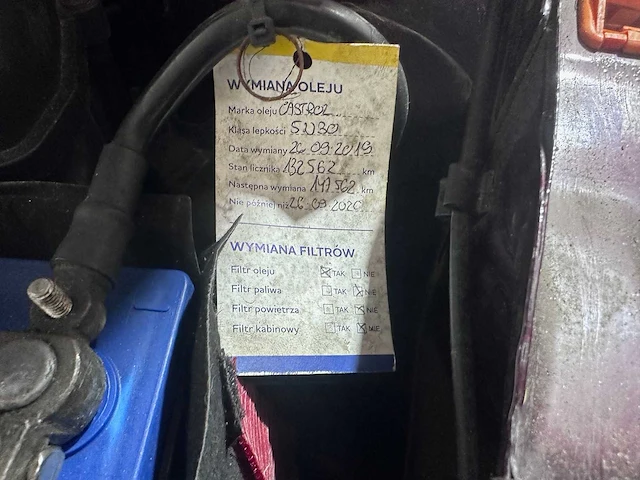 WYMIANA OLEJU
Marka oleju CASTROL
Klasa lepkości 5W30
Data wymiany 26.09.2019
Stan licznika 132562 km
Następna wymiana 147562 km
Nie później niż 26.09.2020
WYMIANA FILTRÓW
Filtr oleju TAK NIE
Filtr paliwa TAK NIE
Filtr powietrza TAK NIE
Filtr kabinowy TAK NIE